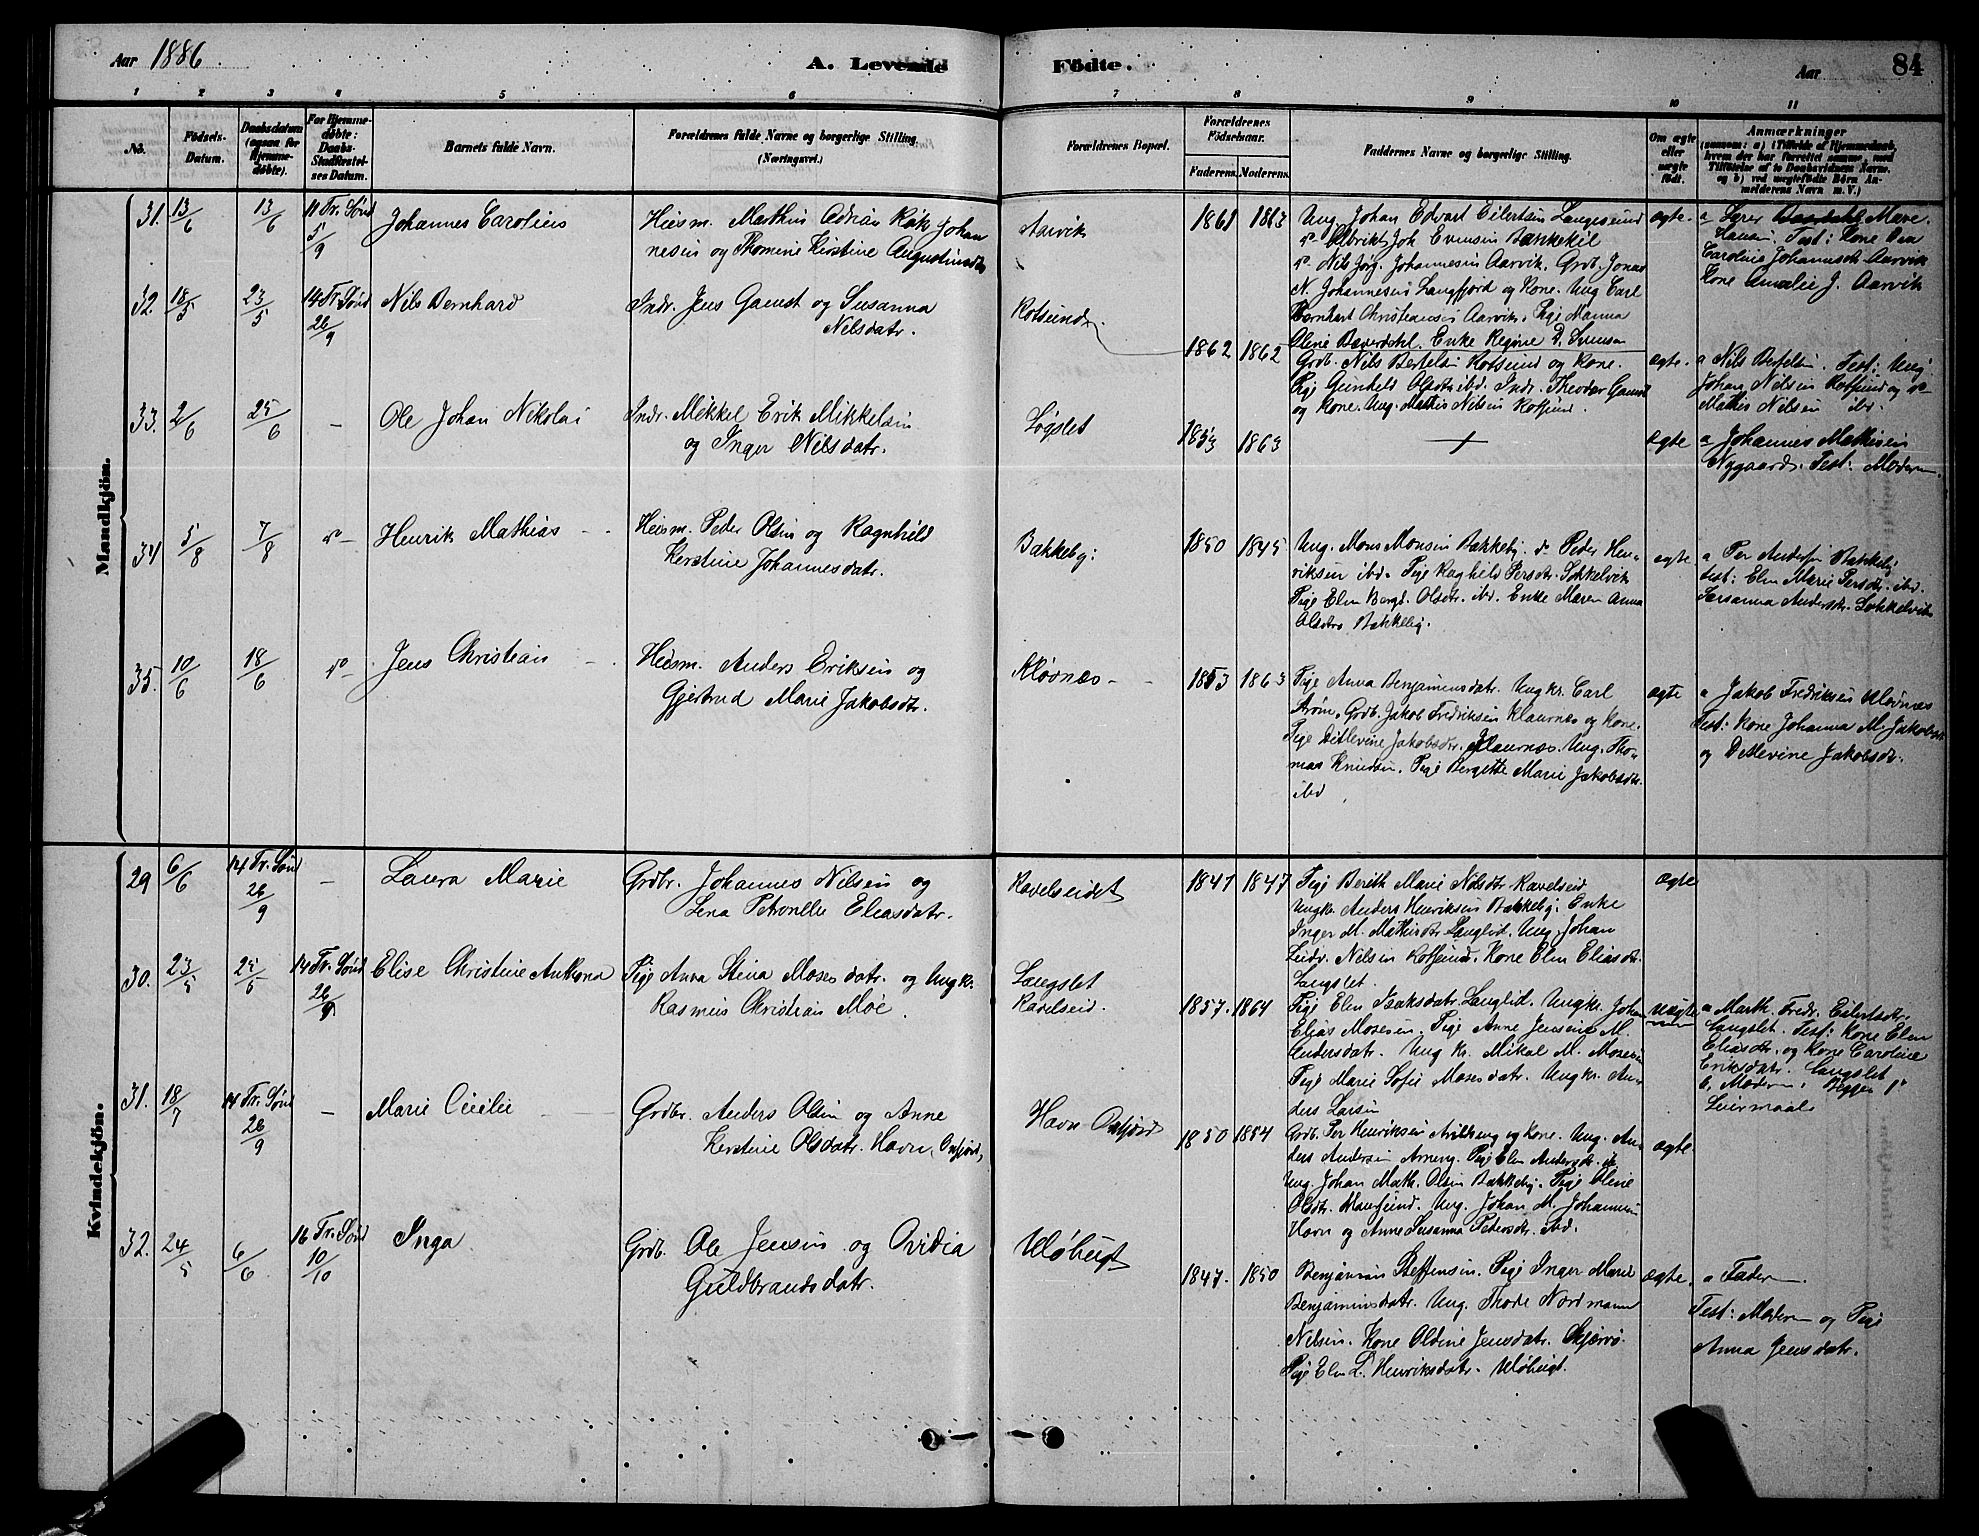 Aar 1886. A. Levende Fødte. Aar 84
1 2 3 4 5 6 7 8 9 10 11
No. Fødsels-Datum. Daabsdatum (ogsaa for Hjemmedøbte). For Hjemmedøbte: Daabs-Stadfæstelses Datum. Barnets fulde Navn. Forældrenes fulde Navne og borgerlige Stilling. (Næringsvei.) Forældrenes Bopæl. Forældrenes Fødselsaar. Faderens. Moderens. Faddernes Navne og borgerlige Stilling. Om ægte eller uægte født. Anmærkninger (saasom: a) i Tilfælde af Hjemmedaab, hvem der har forrettet samme, med Tilføielse af to Daabsvidners Navne, og b) ved uægtefødte Børn Anmelderens Navn m. V.)
Mandkjøn.
31. 13/6 13/6 11 Tr. Sønd 5/9 Johannes Carolius
Heism. Mathis Adrian Røk Johan
nesen og Thomine Kirstine Augustinsdtr
Aarvik 1861 1863
Ung. Johan Edvart Eilertsen Langesund
do Albrikt Joh. Evensen Bankekil
do Nils Jørg. Johannesen Aarvik. Grdb. Jonas
N. Johannesen Langfjord og Kone. Ung Carl
Bernhart Christiansen Aarvik. Pige Manna
Oline Baverdahl. Enke Regine D. Svensen
ægte. a Lærer Mare
Hansen. Test: Kone Dea
Caroline Johannesdtr Aarvik
Kone Amalie J. Aarvik
32. 18/5 23/5 14 Tr. Sønd 26/9 Nils Bernhard
Indr. Jens Gamst og Susanna
Nilsdatr.
Rotsund. 1862 1862
Grdb. Nils Bertelsen Rotsund og Kone.
Pige Gunhild Olsdtr ibd. Indr. Theodor Gamst
og Kone. Ung. Mathis Nilsen Rotsund.
ægte. a Nils Bertelsen. Test: Ung.
Johan Nilsen Rotsund og do
Mathis Nilsen ibd.
33. 2/6 25/6 – Ole Johan Nikolai
Indr. Mikkel Erik Mikkelsen
og Inger Nilsdatr.
Løgslet 1853 1863
ægte a Johannes Mathisen
Nygaard. Test: Moderen
34 5/8 7/8 do – Henrik Mathias
Heism. Peder Olsen og Ragnhild
Kerstine Johannesdatr.
Bakkeby. 1850 1845
Ung. Mons Monsen Bakkeby. do Peder Hen-
riksen ibd. Pige Raghild Persdtr. Sokkelvik
Pige Elen Bergt. Olsdtr. ibd. Enke Maren Anna
Olsdtr Bakkeby.
ægte a Per Andersen Bakkeby
Test: Elen Marie Persdtr. ibd.
Susanna Andersdtr. Sokkelvik
35. 10/6 18/6 do – Jens Christian
Heism. Anders Eriksen og
Gjertrud Marie Jakobsdtr.
Kløvnæs 1853 1863
Pige Anna Benjaminsdatr. Ungkr. Carl
Strøm. Grdb. Jakob Fredriksen Klauvnæs og Kone.
Pige Ditlevine Jakobsdtr. Klauvnæs. Ung. Tho-
mas Knudsen. Pige Bergette Marie Jakobsdtr.
ibd
ægte a Jakob Fredriksen Kløvnæs
Test: Kone Johanna M. Jakobsdtr
og Detlevine Jakobsdtr.
Kvindekjøn.
29 6/6 14 Tr. Sønd 26/9 – Laura Marie
Grdbr. Johannes Nilsen og
Lena Petronelle Eliasdatr.
Ravelseidet 1841 1847
Pige Berith Marie Nilsdtr Ravelseid
Ungkr. Anders Henriksen Bakkeby. Enke
Inger M. Mathisdtr Langlid. Ung. Johan
Leidr. Nilsen Rotsund. Kone Elen Eliasdtr.
Langslet.
ægte
30. 23/5 25/6 14 Tr. Sønd 26/9 Elise Christine Antona
Pige Anna Stina Mosesdatr. og Ungkr.
Rasmus Christian Moe.
Langslet
Ravelseid. 1857. 1864
Pige Elen Isaksdatr. Langlid. Ungkr. Johan
Elias Mosesen. Pige Anne Jensine M.
Andersdatr. Ung kr. Mikal M. Mosesen
Pige Marie Sofie Mosesdatr. Ungkr. An-
ders Larsen
uægte a Marth. Fredr. Eilertsdtr.
Langslet. Test: Kone Elen
Eliasdtr. og Kone Caroline
Eriksdatr. Langslet
b, Moderen. Begges 1ste
Leiermaal.
31. 18/7 14 Tr. Sønd 26/9 – Marie Cicilie
Grdbr. Anders Olsen og Anne
Kerstine Olsdatr. Havn, Oxfjord,
Havn Oxfjord 1850 1854
Grdb. Per Henriksen og Kone. Ung. An-
ders Andersen Arneng. Pige Elen Andersdtr. ib
Ung. Johan Math. Olsen Bakkeby. Pige Oline
Olsdtr. Maursund. Ung. Johan M. Johannesen
Havn og Anne Susanna Pedersdtr. ibd.
ægte.
32. 24/5 6/6 16 Tr. Sønd 10/10 Inga
Grdb. Ole Jensen og Ovidia
Guldbrandsdatr.
Uløbugt 1847. 1850
Benjamin Steffensen. Pige Inger Marie
Benjaminsdatr. Ung. Thode Nordmann
Nilsen. Kone Oldine Jensdatr. Skjærvø.
Pige Elen L. Henriksdatr. Uløbugt.
ægte. a Faderen.
Test: Moderen og Pige
Anna Jensdatr.